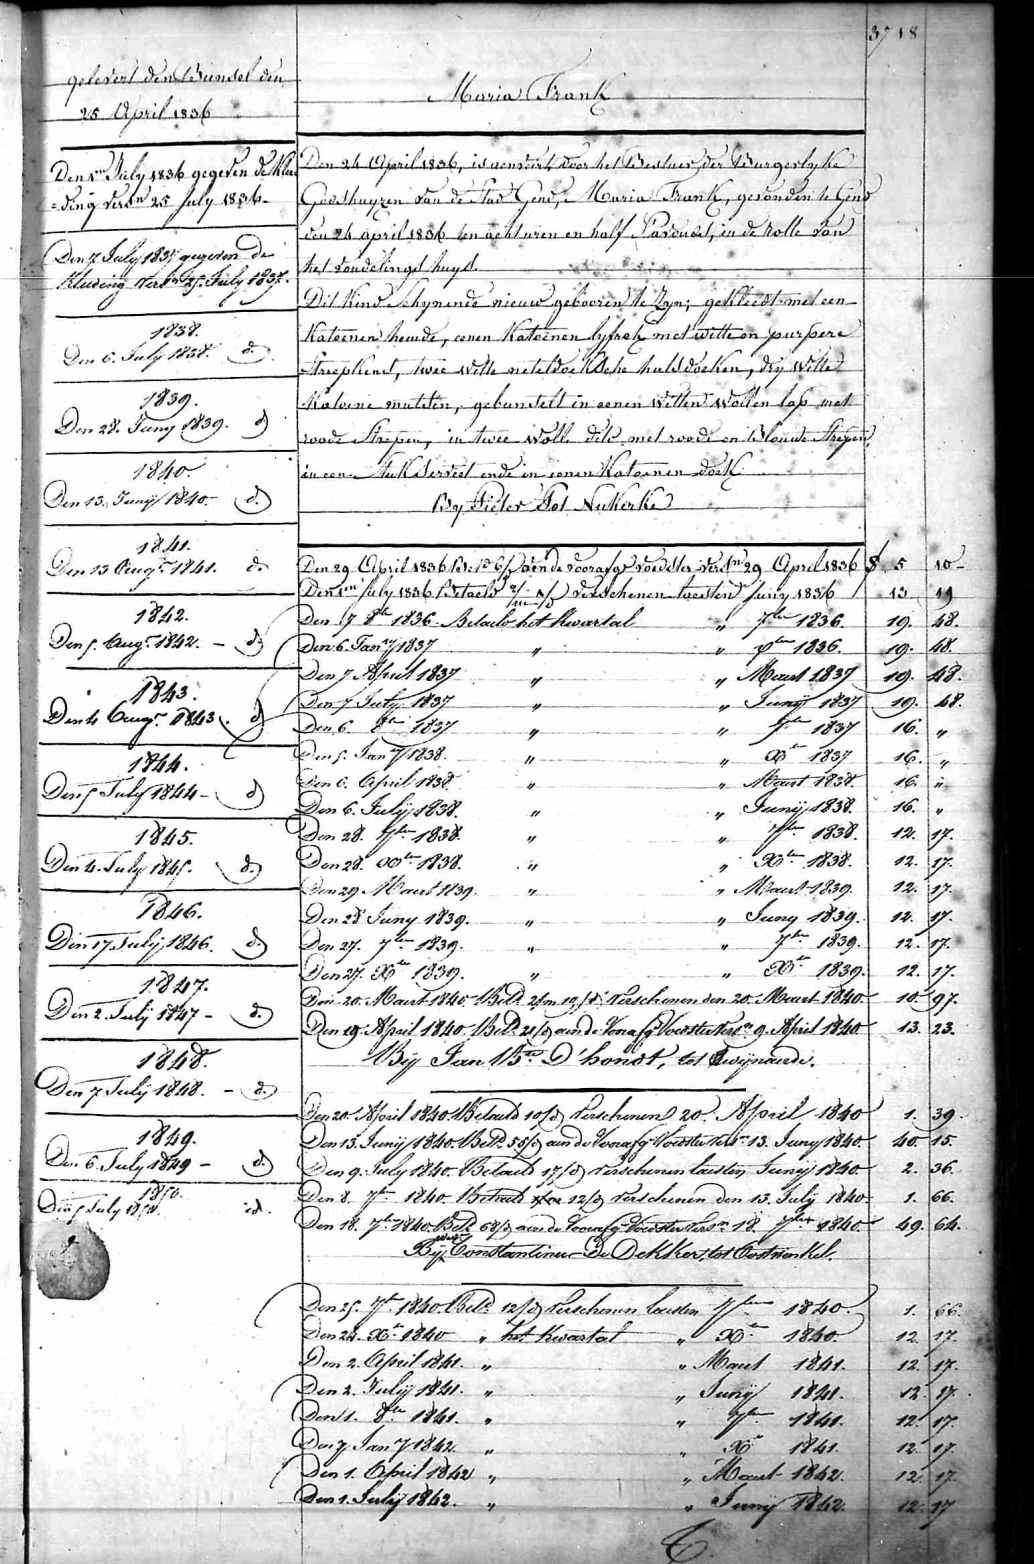 3718
gelevert den Bunsel den
25 April 1836
Den 1en July 1836 gegeven de Klee
=ding versn 25 July 1836-
Den 7 July 1837 gegeven de
Kleeding versn 25 July 1837.
1838.
Den 6. July 1838. d.
1839.
Den 28. Juny 1839. d
1840.
Den 13. Junij 1840. d.
1841.
Den 13 Augt. 1841. d.
1842.
Den 5. Augt. 1842. - d.
1843.
Den 4 Augt. 1843. d
1844.
Den 5 July 1844 - d
1845.
Den 4. July 1845. d.
1846.
Den 17 July 1846. d.
1847.
Den 2. Julij 1847 - d.
1848.
Den 7 Julij 1848. - d.
1849.
Den 6. July 1849 - d.
1850.
Den 5 July 1850. id.
Maria Frank
Den 24 April 1836, is aenveert door het Bestuer der Burgerlyke
Godshuyzen van de Stad Gend, Maria Frank, gevonden te Gend
den 24 april 1836 ten acht uren en half s'avonds, in de rolle van
het vondelings huys.
Dit Kind schynende nieuw gebooren te Zyn; gekleedt met een
Katoenen hemde, eenen Katoenen lyfrok met witte en purpere
Streepkens, twee witte neteldoeksche halsdoeken, dry witte
Katoene mutsen, gebunselt in eenen witten wollen lap met
roode Strepen, in twee wolle dele met roode en Blouwe Strepen,
in een Stuk Serviet ende in eenen Katoenen doek
By Pieter Tot Nukerke
Den 29 April 1836 aende voorafge voedster versn 29 April 1836 5 10-
Den 1en July 1836 Betaeld verschenen laesten Juny 1836 13 19
Den 7 8bre 1836. Betaeld het Kwartal " 7ber 1836. 19. 48.
Den 6. Jany 1837 " " xber 1836. 19. 48.
Den 7 April 1837 " " Maert 1837 19. 48.
Den 7 July 1837 " " Junij 1837 19. 48.
Den 6. 8bre 1837 " " 7ber 1837 16. "
Den 5. Jany 1838. " " Xber 1837 16. "
Den 6. April 1838. " " Maert 1838. 16. "
Den 6. Julij 1838. " " Junij 1838. 16. "
Den 28. 7ber 1838. " " 7ber 1838. 12. 17.
Den 28. Xber 1838. " " Xber 1838. 12. 17.
Den 29 Maert 1839. " " Maert 1839. 12. 17.
Den 28 Juny 1839. " " Juny 1839. 12. 17.
Den 27. 7ber 1839. " " 7ber 1839. 12. 17.
Den 27. Xber 1839. " " Xber 1839. 12. 17.
Den 20. Maert 1840 Betd. 2/m 19/d verschenen den 20. Maert 1840 10. 97.
Den 19. April 1840. Betd. 21/d aen de voorafge Voedster versn 9. April 1840 13. 23.
Bij Jan Bte D'hondt, tot Zwijnaerde.
Den 20. April 1840 Betaeld 10/d verschenen 20. April 1840 1. 39.
Den 13. Junij 1840. Betd. 55/d aen de voorafge Voedster versn 13. Juny 1840. 40. 15.
Den 9. July 1840. Betaeld 17/d verschenen laesten Junij 1840 2. 36.
Den 8. 7ber 1840. Betaeld 12/d verschenen den 13. Julij 1840 1. 66.
Den 18. 7ber 1840 Betd. 68/d aen de voorafge Voedster versn 18. 7ber 1840. 49. 64.
Bij Constantinus De Dekker, tot Oostwinkel.
Den 25. 7ber 1840. Betd. 12/d verschenen laesten 7ber 1840. 1. 66.
Den 24. Xber 1840 " het Kwartal " Xber 1840. 12 17.
Den 2. April 1841. " " Maert 1841. 12. 17.
Den 2. Julij 1841. " " Junij 1841. 12. 17.
Den 1. 8bre 1841. " " 7ber 1841. 12. 17.
Den 7 Jany 1842. " " Xber 1841. 12. 17.
Den 1. April 1842 " " Maert 1842. 12. 17.
Den 1. Julij 1842. " " Junij 1842. 12. 17